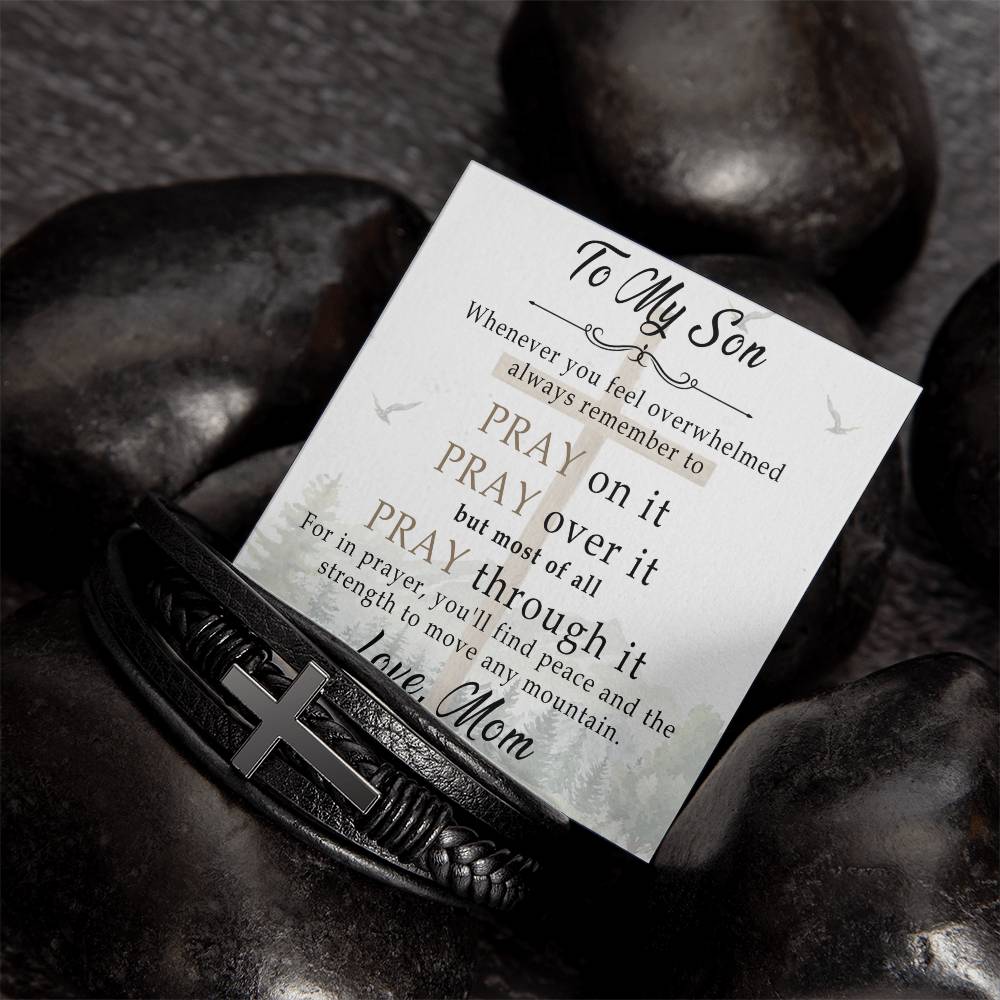 To My Son
Whenever you feel overwhelmed
always remember to
PRAY on it
PRAY over it
but most of all
PRAY through it
For in prayer, you'll find peace and the
strength to move any mountain.
Love, Mom